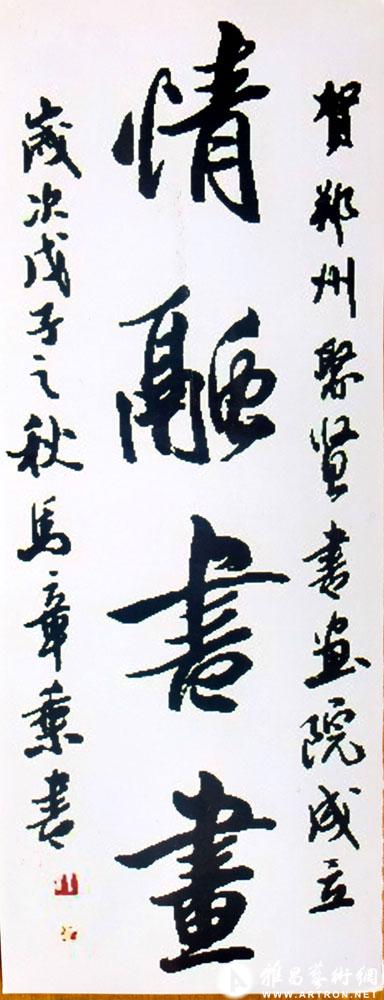 賀鄭州聚贤書画院成立
情融書畫
歲次戊子之秋馬章乘書
雅昌藝術網
WWW.ARTRON.NET